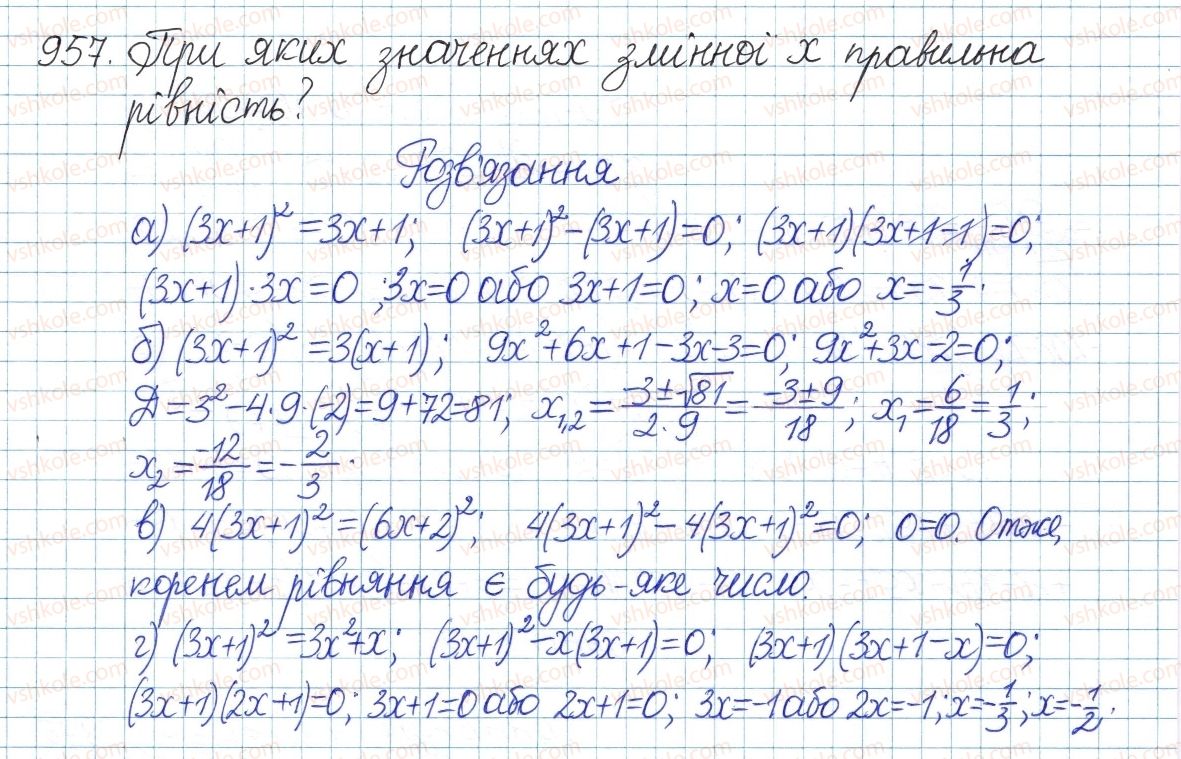 957. При яких значеннях змінної x правильна
рівність?
Розв'язання
а) (3x+1)² = 3x+1; (3x+1)² - (3x+1) = 0; (3x+1)(3x+1-1) = 0;
(3x+1)·3x = 0; 3x = 0 або 3x+1 = 0; x = 0 або x = -1/3.
б) (3x+1)² = 3(x+1); 9x²+6x+1-3x-3=0; 9x²+3x-2=0;
Д = 3²-4·9·(-2) = 9+72 = 81; x₁,₂ = (-3±√81)/(2·9) = (-3±9)/18; x₁ = 6/18 = 1/3;
x₂ = -12/18 = -2/3.
в) 4(3x+1)² = (6x+2)²; 4(3x+1)² - 4(3x+1)² = 0; 0=0. Отже,
коренем рівняння є будь-яке число.
г) (3x+1)² = 3x²+x; (3x+1)² - x(3x+1) = 0; (3x+1)(3x+1-x) = 0;
(3x+1)(2x+1)=0; 3x+1=0 або 2x+1=0; 3x=-1 або 2x=-1; x=-1/3; x=-1/2.